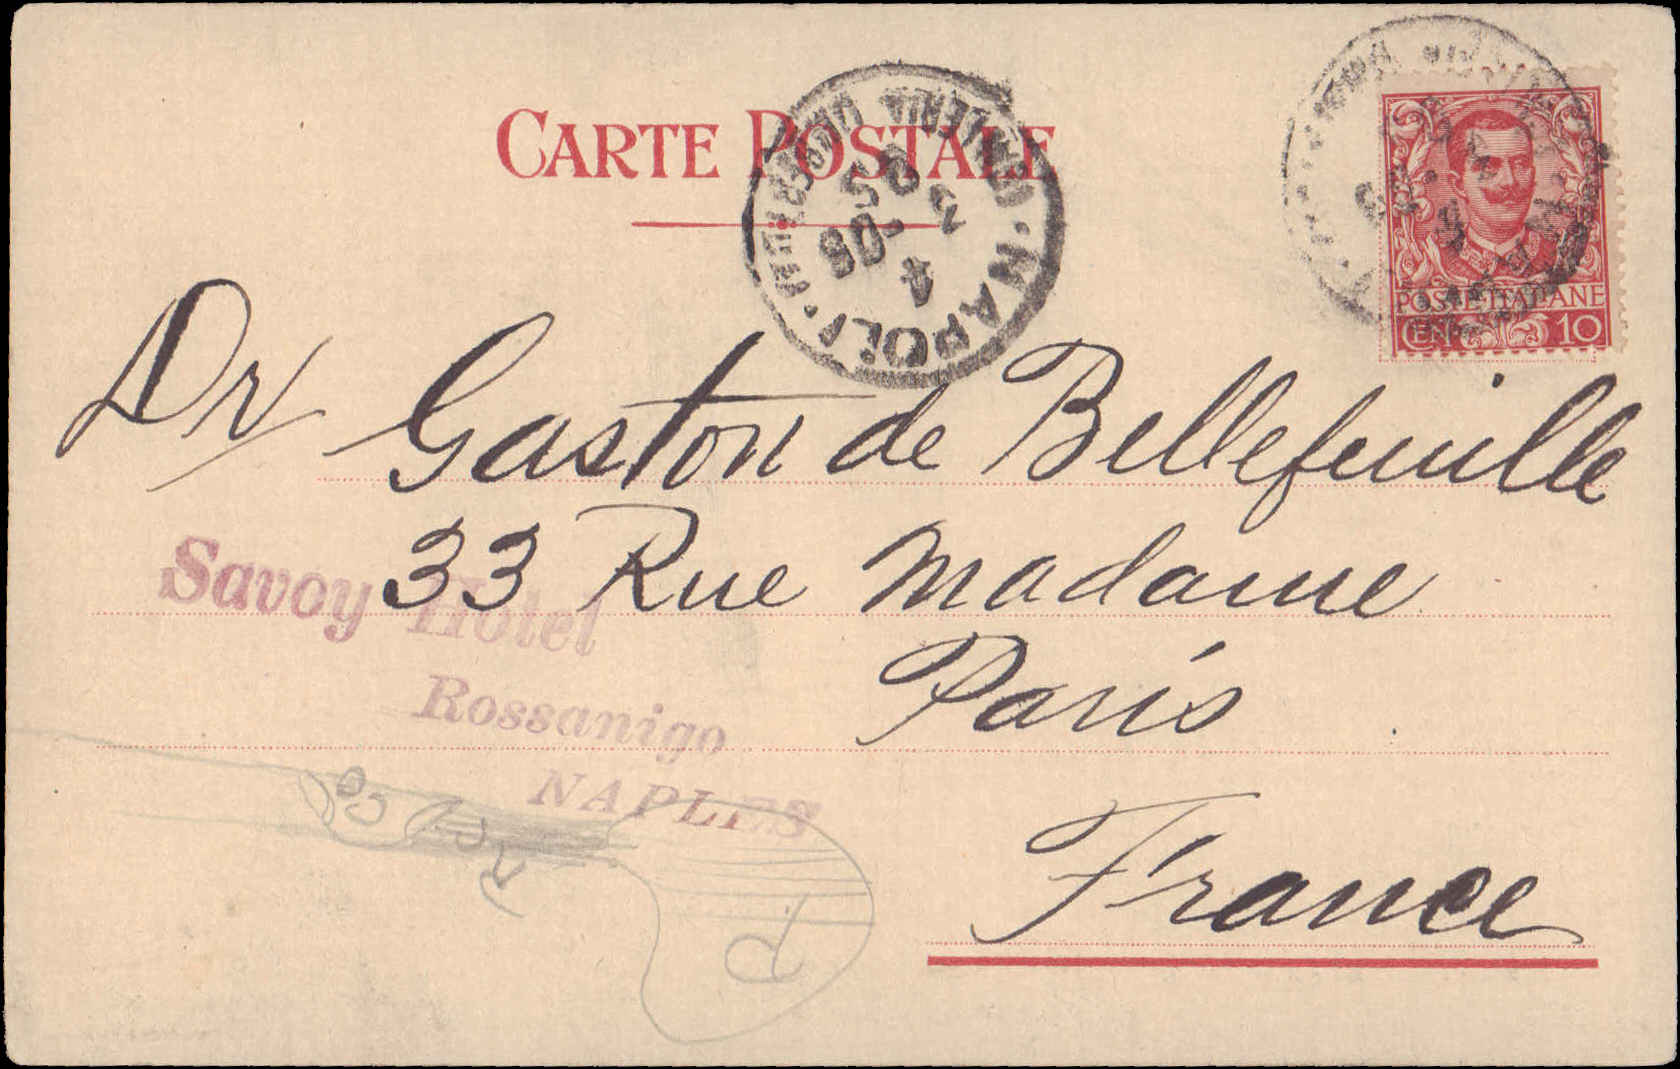 CARTE POSTALE
NAPOLI
GALLERIA UMBERTO I
POSTE ITALIANE
CEN 10
Dr Gaston de Bellefeuille
33 Rue Madame
Paris
France
Savoy Hotel
Rossanigo
NAPLES
R